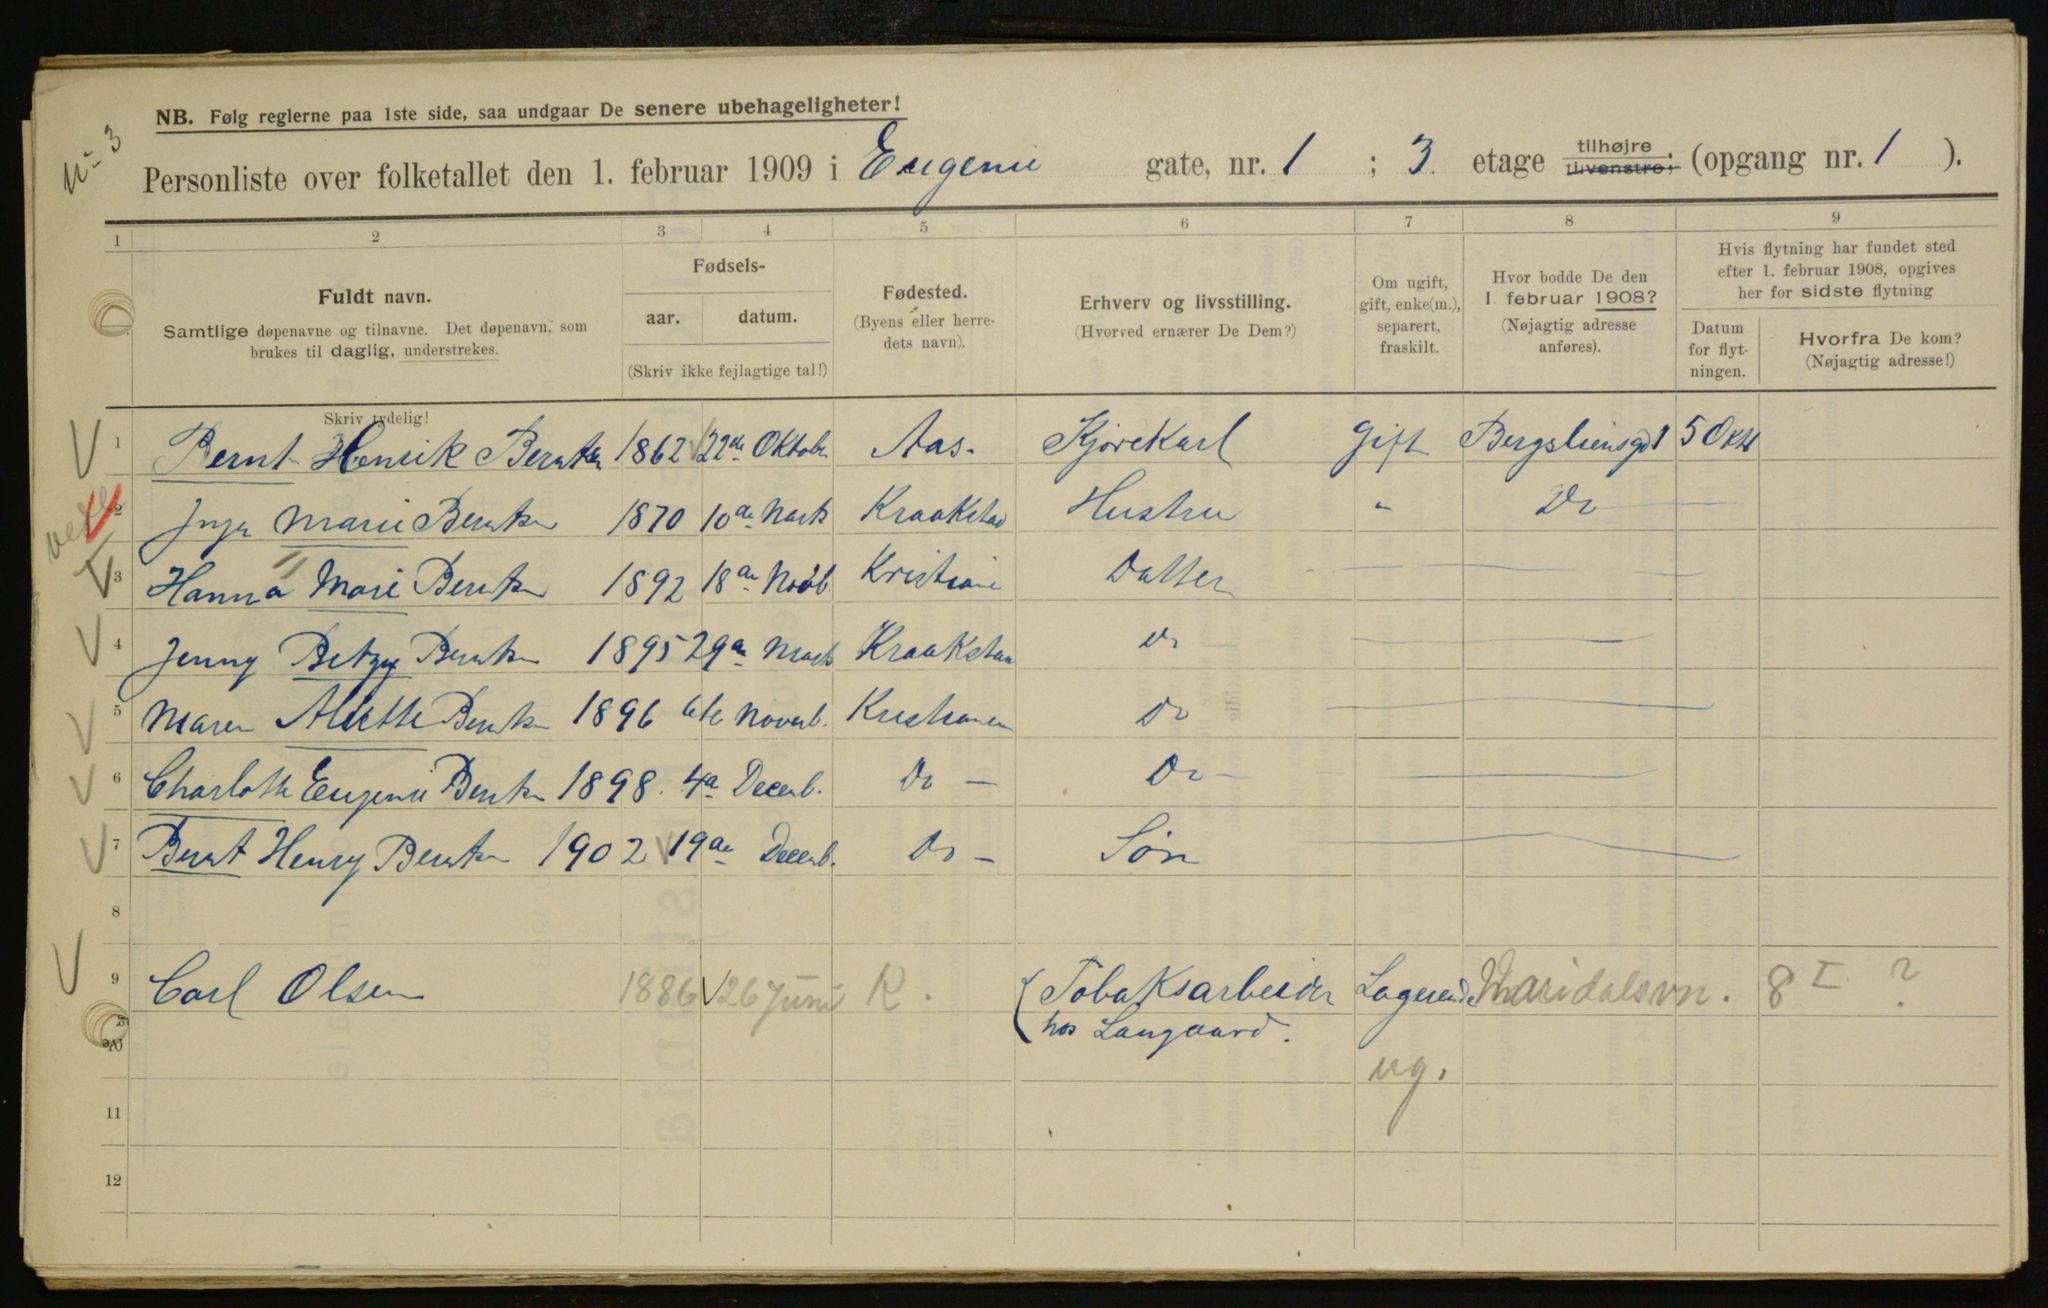 No 3
NB. Følg reglerne paa 1ste side, saa undgaar De senere ubehageligheter!
Personliste over folketallet den 1. februar 1909 i Eugenie gate, nr. 1 ; 3. etage tilhøjre; tilvenstre; (opgang nr. 1 ).
1 2 3 4 5 6 7 8 9
Fuldt navn.
Samtlige døpenavne og tilnavne. Det døpenavn, som
brukes til daglig, understrekes.
Skriv tydelig!
Fødsels-
aar. datum.
(Skriv ikke fejlagtige tal!)
Fødested.
(Byens eller herre-
dets navn).
Erhverv og livsstilling.
(Hvorved ernærer De Dem?)
Om ugift,
gift, enke(m.),
separert,
fraskilt.
Hvor bodde De den
1. februar 1908?
(Nøjagtig adresse
anføres).
Hvis flytning har fundet sted
efter 1. februar 1908, opgives
her for sidste flytning
Datum
for flyt-
ningen.
Hvorfra De kom?
(Nøjagtig adresse!)
1 Bernt Henrik Berntsen 1862 22de Oktober Aas. Kjørekarl Gift Bergsliensgd 1 5 Okt
2 Inga Marie Berntsen 1870 10de Marts Kraakstad Hustru " Do
3 Hanna Marie Berntsen 1892 18de Novb. Kristiania Datter
4 Jenny Betzy Berntsen 1895 29de Marts Kraakstad Do
5 Maren Alette Berntsen 1896 6te Novemb. Kristiania Do
6 Charlotte Eugenie Berntsen 1898. 4de Decemb. Do — Do —
7 Bernt Henry Berntsen 1902 19de Decemb. Do — Søn
8
9 Carl Olsen 1886 26 Juni K. Tobaksarbeider Logerende Maridalsvn. 8 I ?
10 hos Langaard. ug.
11
12